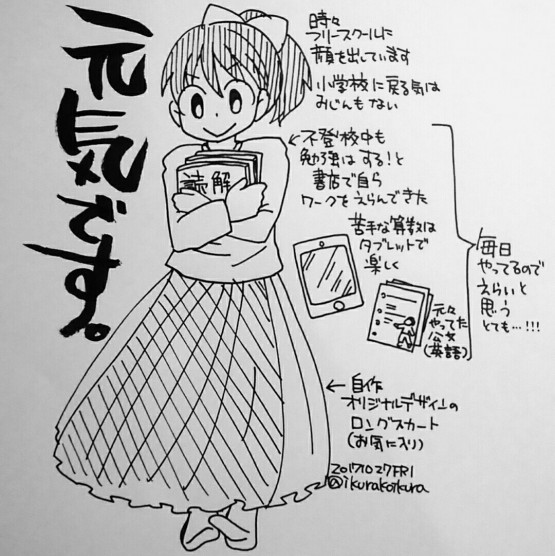 元気です。
時々
フリースクールに
顔を出しています
小学校に戻る気は
みじんもない
←不登校中も
勉強は する!と
書店で自ら
ワークをえらんできた
読解
苦手な算数は
タブレットで
楽しく
元々
やってた
公文
(英語)
毎日
やってるので
えらいと
思う
とても…!!!
←自作
オリジナルデザインの
ロングスカート
(お気に入り)
20171027FRI
@ikurakoikura